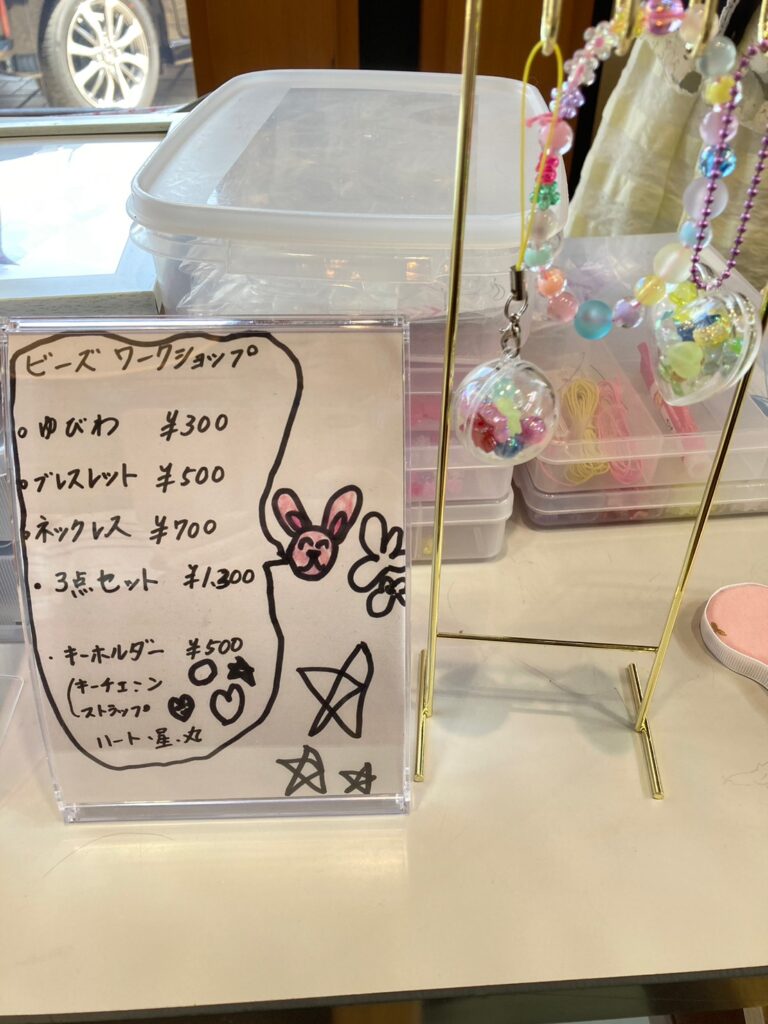 ビーズ ワークショップ
・ゆびわ ¥300
・ブレスレット ¥500
・ネックレス ¥700
・3点セット ¥1.300
・キーホルダー ¥500
(キーチェーン
ストラップ
ハート・星・丸